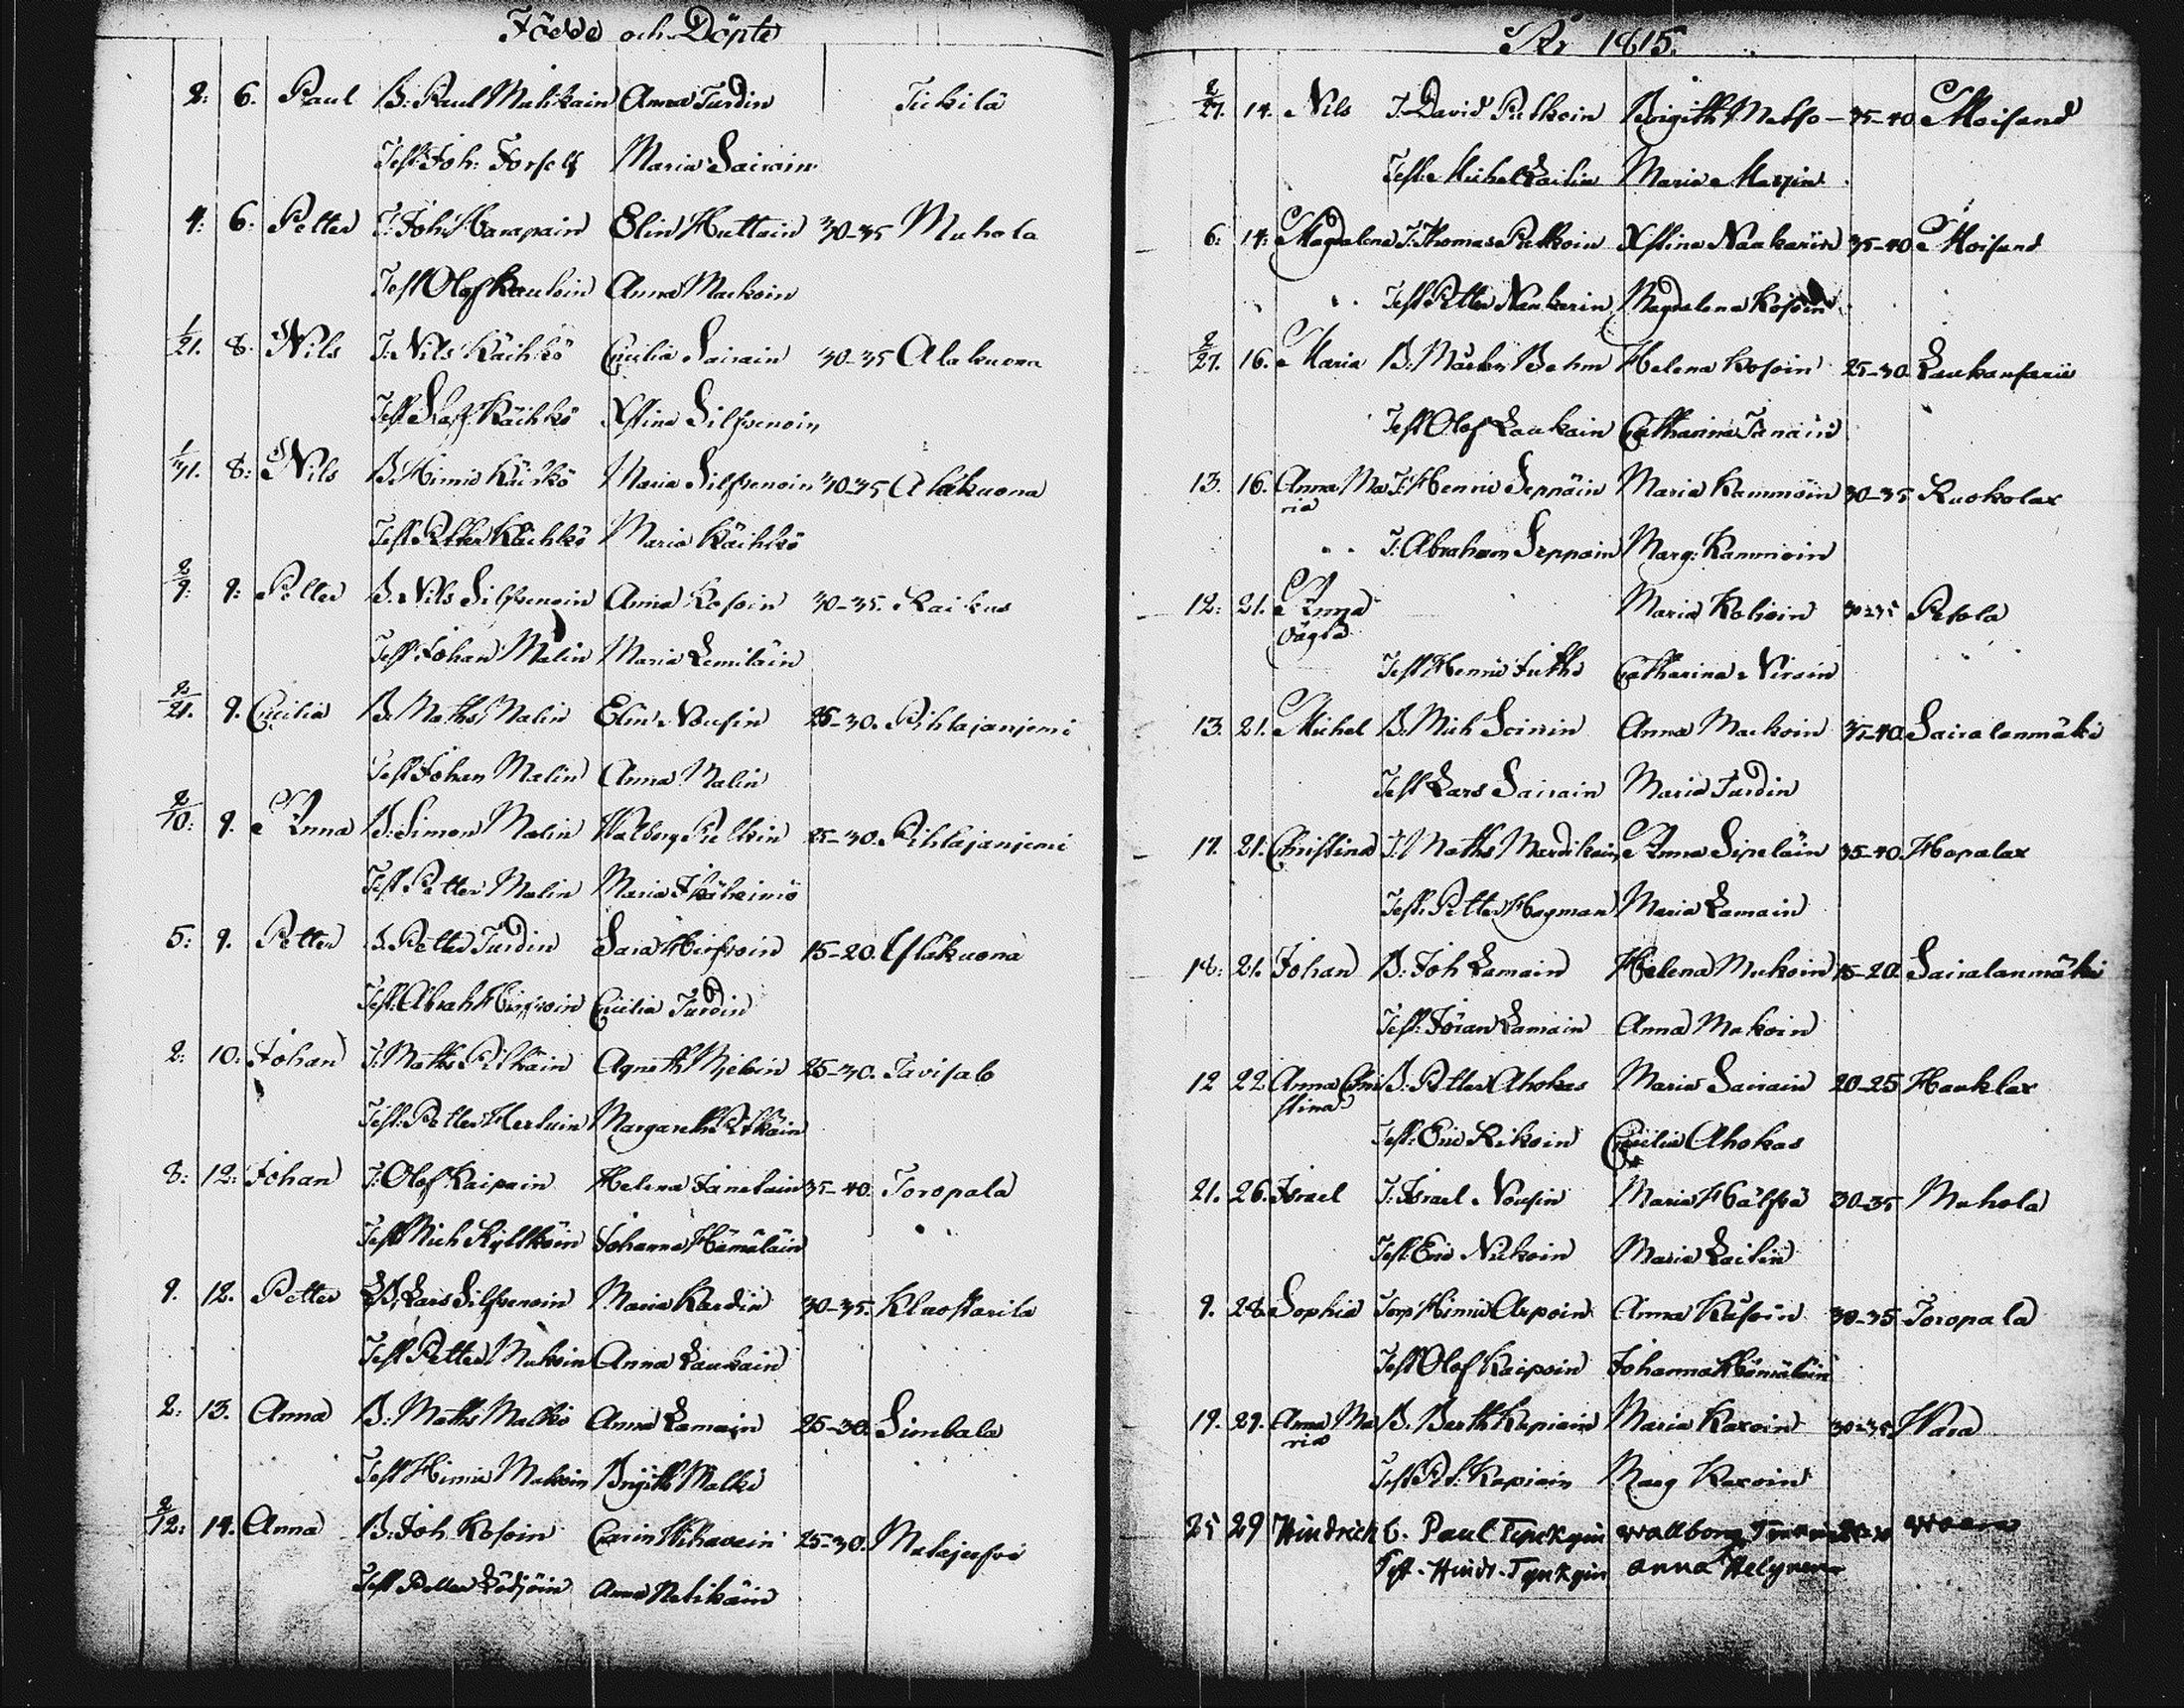 Födde och Döpte
2: 6. Paul B: Paul Malikain Anna Turdin Tickilä
Test Joh: Forsell Maria Sairain
4: 6: Petter T: Joh: Harapain Elin Huttoin 30-35 Muhola
Test Olof Kauloin Anna Mackoin
1/21. 8. Nils T: Nils Käihkö Cecilia Sairain 30-35 Alakuona
Test Staff: Käihkö Xstina Silfvenoin
1/31. 8: Nils B: Hinric Käihkö Maria Silfvenoin 30-35 Alakuona
Test Petter Käihkö Maria Käihkö
2/9: 9: Petter B. Nils Silfvenoin Anna Kosoin 30-35. Raikus
Test Johan Malin Maria Lemiläin
2/21. 9. Cecilia B. Maths Malin Elin Nousin 25-30. Pihlajanjemi
Test Johan Malin Anna Malin
2/10: 9. Anna B: Simon Malin Walborg Peltoin 25-30. Pihlajanjemi
Test Petter Malin Maria
5: 9. Petter B. Petter Turdin Sara Hirfvoin 15-20. Yläkuona
Test: Abrah Hirfvoin Cecilia Turdin
2: 10: Johan T: Maths Pitkäin Agneth 25-30. Tavisalo
Test: Petter Herluin Margareth Pitkäin
8: 12: Johan T: Olof Kaipain Helena Janelain 35-40. Toropala
Test Mich Kyllköin Johanna Hämäläin
9. 12. Petter Lars Silfvenoin Maria Kardin 30-35.
Test Petter Mukoin Anna Laukain
2: 13. Anna B: Maths Malki Anna Lamain 25-30. Simbala
Test Hinric Makoin Brigith Malki
2/12: 14. Anna B. Joh. Kosoin Carin Wihavain 25-30.
Test Petter Anna
År 1815.
2/27. 14. Nils T. David Putkoin Brigith Matso - 35-40 Moisand
Test: Michel Lailin Maria
6: 14: Magdalena T: Thomas Putkoin Xstina Naukarin 35-40 Moisand
Test Petter Naukarin Magdalena Kosoin
2/27. 16. Maria B: Behm Helena Kosoin 25-30.
Test Olof Laukain Catharina
13. 16. Anna Ma T: Henric Seppäin Maria Kammoin 30-35 Ruokolax
ria
T: Abraham Seppain Marg: Kammoin
12: 21. Anna Maria Kohoin 30-35 Potola
oägta
Test Henric Catharina Niroin
13. 21. Michel B: Mich Anna Mackoin 35-40. Sairalanmäki
Test Lars Sairain Maria Turdin
17. 21. Christina T: Maths Mardikain Anna Sipeläin 35-40 Hapalax
Test: Petter Hagman Maria Lamain
18: 21. Johan B: Joh Lamain Helena Mukoin 15-20. Sairalanmäki
Test: Jöran Lamain Anna Mukoin
12 22. Anna Chri B: Petter Ahokas Maria Sairain 20-25 Hauklax
stina
Test: Eric Rikoin Cecilia Ahokas
21. 26. Israel T: Israel Nousin Maria Hälfvä 30-35 Muhola
Test: Eric Nickoin Maria Lailin
9. 28. Sophia Torp Hinric Arpoin Anna Käsöin 30-35 Toropala
Test Olof Kaipoin Johanna Hämäläin
19. 29. Anna Ma B. Barth Kapiain Maria Karoin 30-35 Wara
ria
Test Pet: Kapiain Marg Karoin
25 29 Hindrick b. Paul Tynckyin wallborg
Test. Hindr. Tynkyin anna Helynen